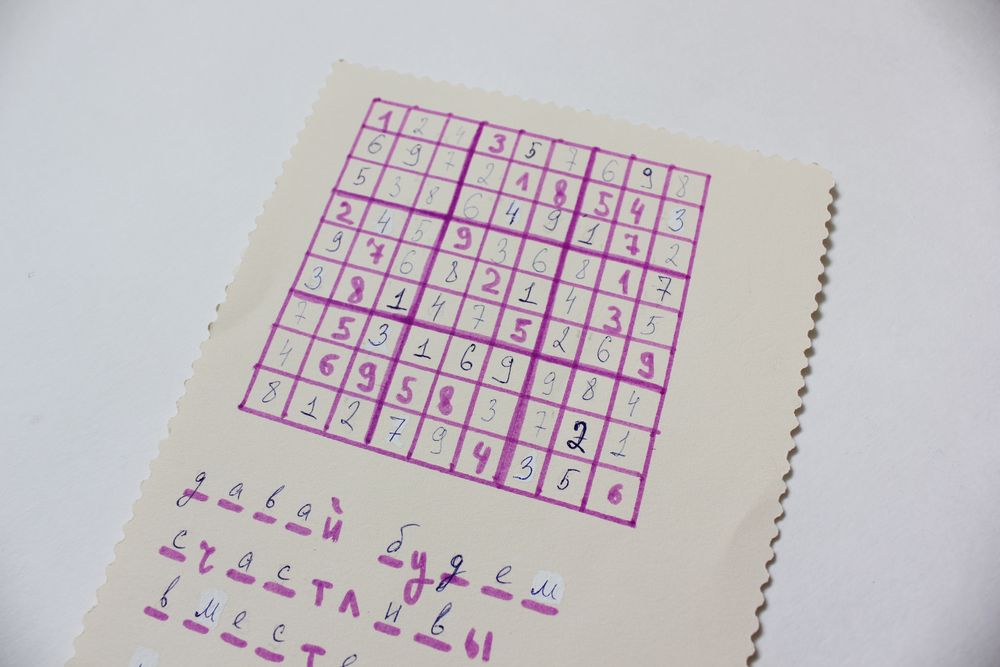 1 2 4 3 5 7 6 9 8
6 9 7 2 1 8 5 4 3
5 3 8 6 4 9 1 7 2
2 4 5 9 3 6 8 1 7
9 7 6 8 2 1 4 3 5
3 8 1 4 7 5 2 6 9
7 5 3 1 6 9 9 8 4
4 6 9 5 8 3 7 2 1
8 1 2 7 9 4 3 5 6
давай будем
счастливы
вместе